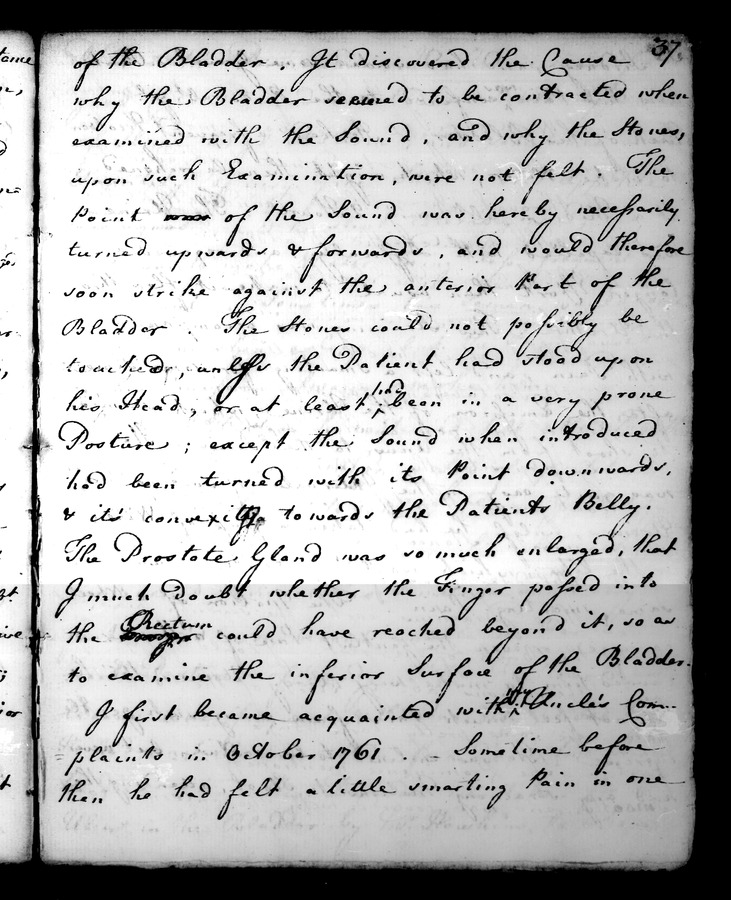 37
of the Bladder. It discovered the Cause
why the Bladder seemed to be contracted when
examined with the Sound, and why the Stones,
upon such Examination, were not felt. The
Point of the Sound was hereby necessarily
turned upwards & forwards, and would therefore
soon strike against the anterior Part of the
Bladder. The Stones could not possibly be
touched, unless the Patient had stood upon
his Head, or at least had been in a very prone
Posture; except the Sound when introduced
had been turned with its Point downwards,
& its convexity towards the Patients Belly.
The Prostate Gland was so much enlarged, that
I much Doubt whether the Finger passed into
the Rectum could have reached beyond it, so as
to examine the inferior Surface of the Bladder.
I first became acquainted with Uncle's Com-
plaints in October 1761. Sometime before
then he had felt a little smarting Pain in one